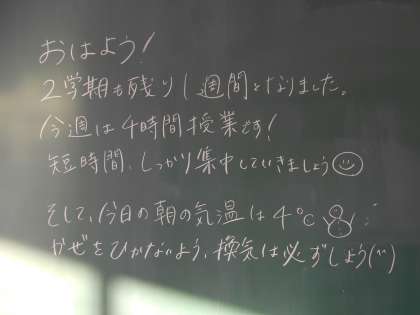 おはよう!
2学期も残り1週間となりました。
今週は4時間授業です!
短時間、しっかり集中していきましょう
そして、今日の朝の気温は4℃
かぜをひかないよう、換気は必ずしよう(^^)